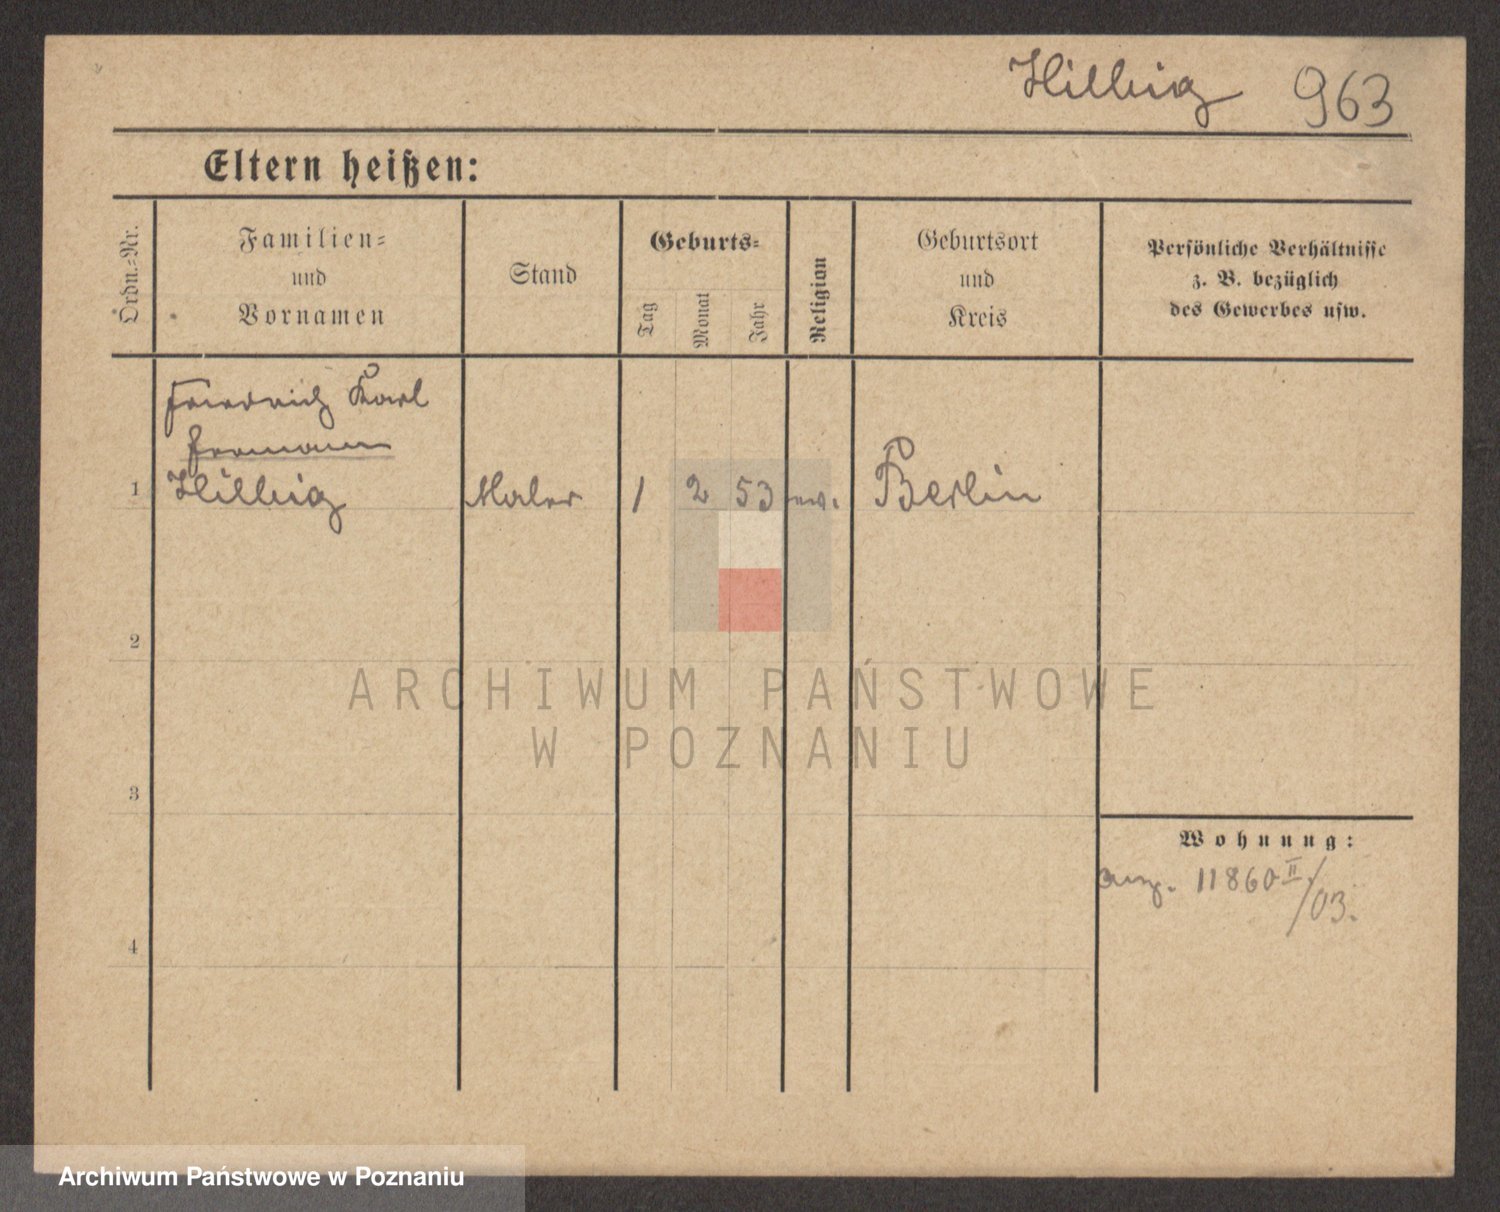 Hillbig 963
Eltern heißen:
Ordn.-Nr.
Familien-
und
Vornamen
Stand
Geburts-
Tag
Monat
Jahr
Religion
Geburtsort
und
Kreis
Persönliche Verhältnisse
z. B. bezüglich
des Gewerbes usw.
Friedrich Karl
Hermann
1 Hillbig Maler 1 2 53 ev. Berlin
2
3
4
Wohnung:
11860 II/03.
ARCHIWUM PAŃSTWOWE
W POZNANIU
Archiwum Państwowe w Poznaniu